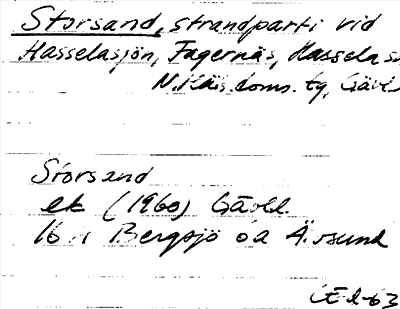 Storsand, strandparti vid
Hasselasjön, Fagernäs, Hassela sn
N. Häls. doms. tg, Gävl
Storsand
ek (1960) Gävl.
16 H Bergsjö